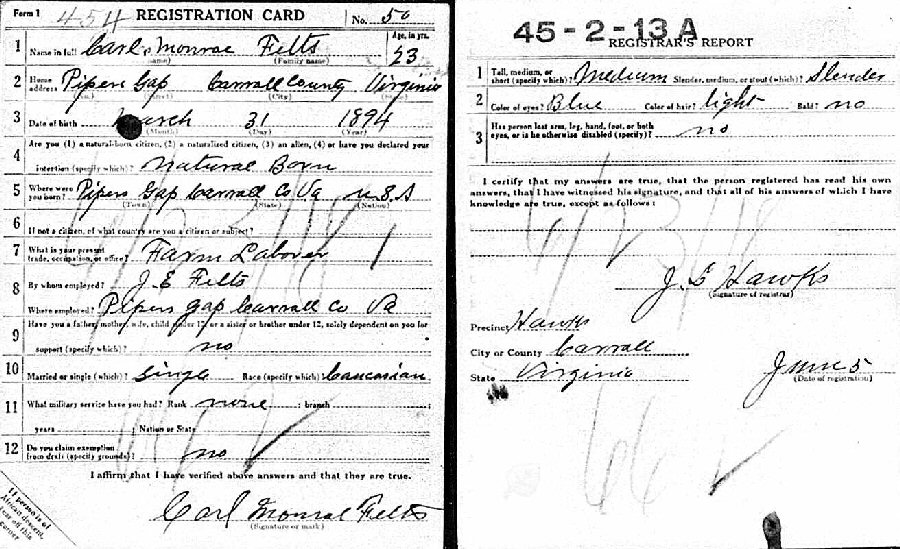 Form 1 454 REGISTRATION CARD No. 50
1 Name in full Carl Monroe Felts Age, in yrs. 23
(Family name)
2 Home address Pipers Gap Carroll County Virginia
(No.) (Street) (City) (State)
3 Date of birth March 31 1894
(Month) (Day) (Year)
4 Are you (1) a natural-born citizen, (2) a naturalized citizen, (3) an alien, (4) or have you declared your
intention (specify which)? Natural Born
5 Where were you born? Pipers Gap Carroll Co Va U.S.A
(Town) (State) (Nation)
6 If not a citizen, of what country are you a citizen or subject?
7 What is your present trade, occupation, or office? Farm Laborer 1
8 By whom employed? J. E Felts
Where employed? Pipers Gap Carroll Co Va
9 Have you a father, mother, wife, child under 12, or a sister or brother under 12, solely dependent on you for
support (specify which)? no
10 Married or single (which)? Single Race (specify which)? Caucasian
11 What military service have you had? Rank none ; branch ;
years ; Nation or State
12 Do you claim exemption from draft (specify grounds)? no
I affirm that I have verified above answers and that they are true.
Carl Monroe Felts
(Signature or mark)
If person is of African descent, tear off this corner
45-2-13 A
REGISTRAR'S REPORT
1 Tall, medium, or short (specify which)? Medium Slender, medium, or stout (which)? Slender
2 Color of eyes? Blue Color of hair? light Bald? no
3 Has person lost arm, leg, hand, foot, or both eyes, or is he otherwise disabled (specify)? no
I certify that my answers are true, that the person registered has read his own
answers, that I have witnessed his signature, and that all of his answers of which I have
knowledge are true, except as follows:
J. S Hawks
(Signature of registrar)
Precinct Hawks
City or County Carroll
State Virginia
June 5
(Date of registration)